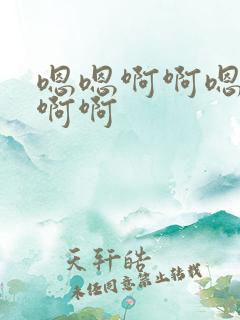 嗯嗯啊啊嗯
啊啊
天轩皓
未经同意禁止转载